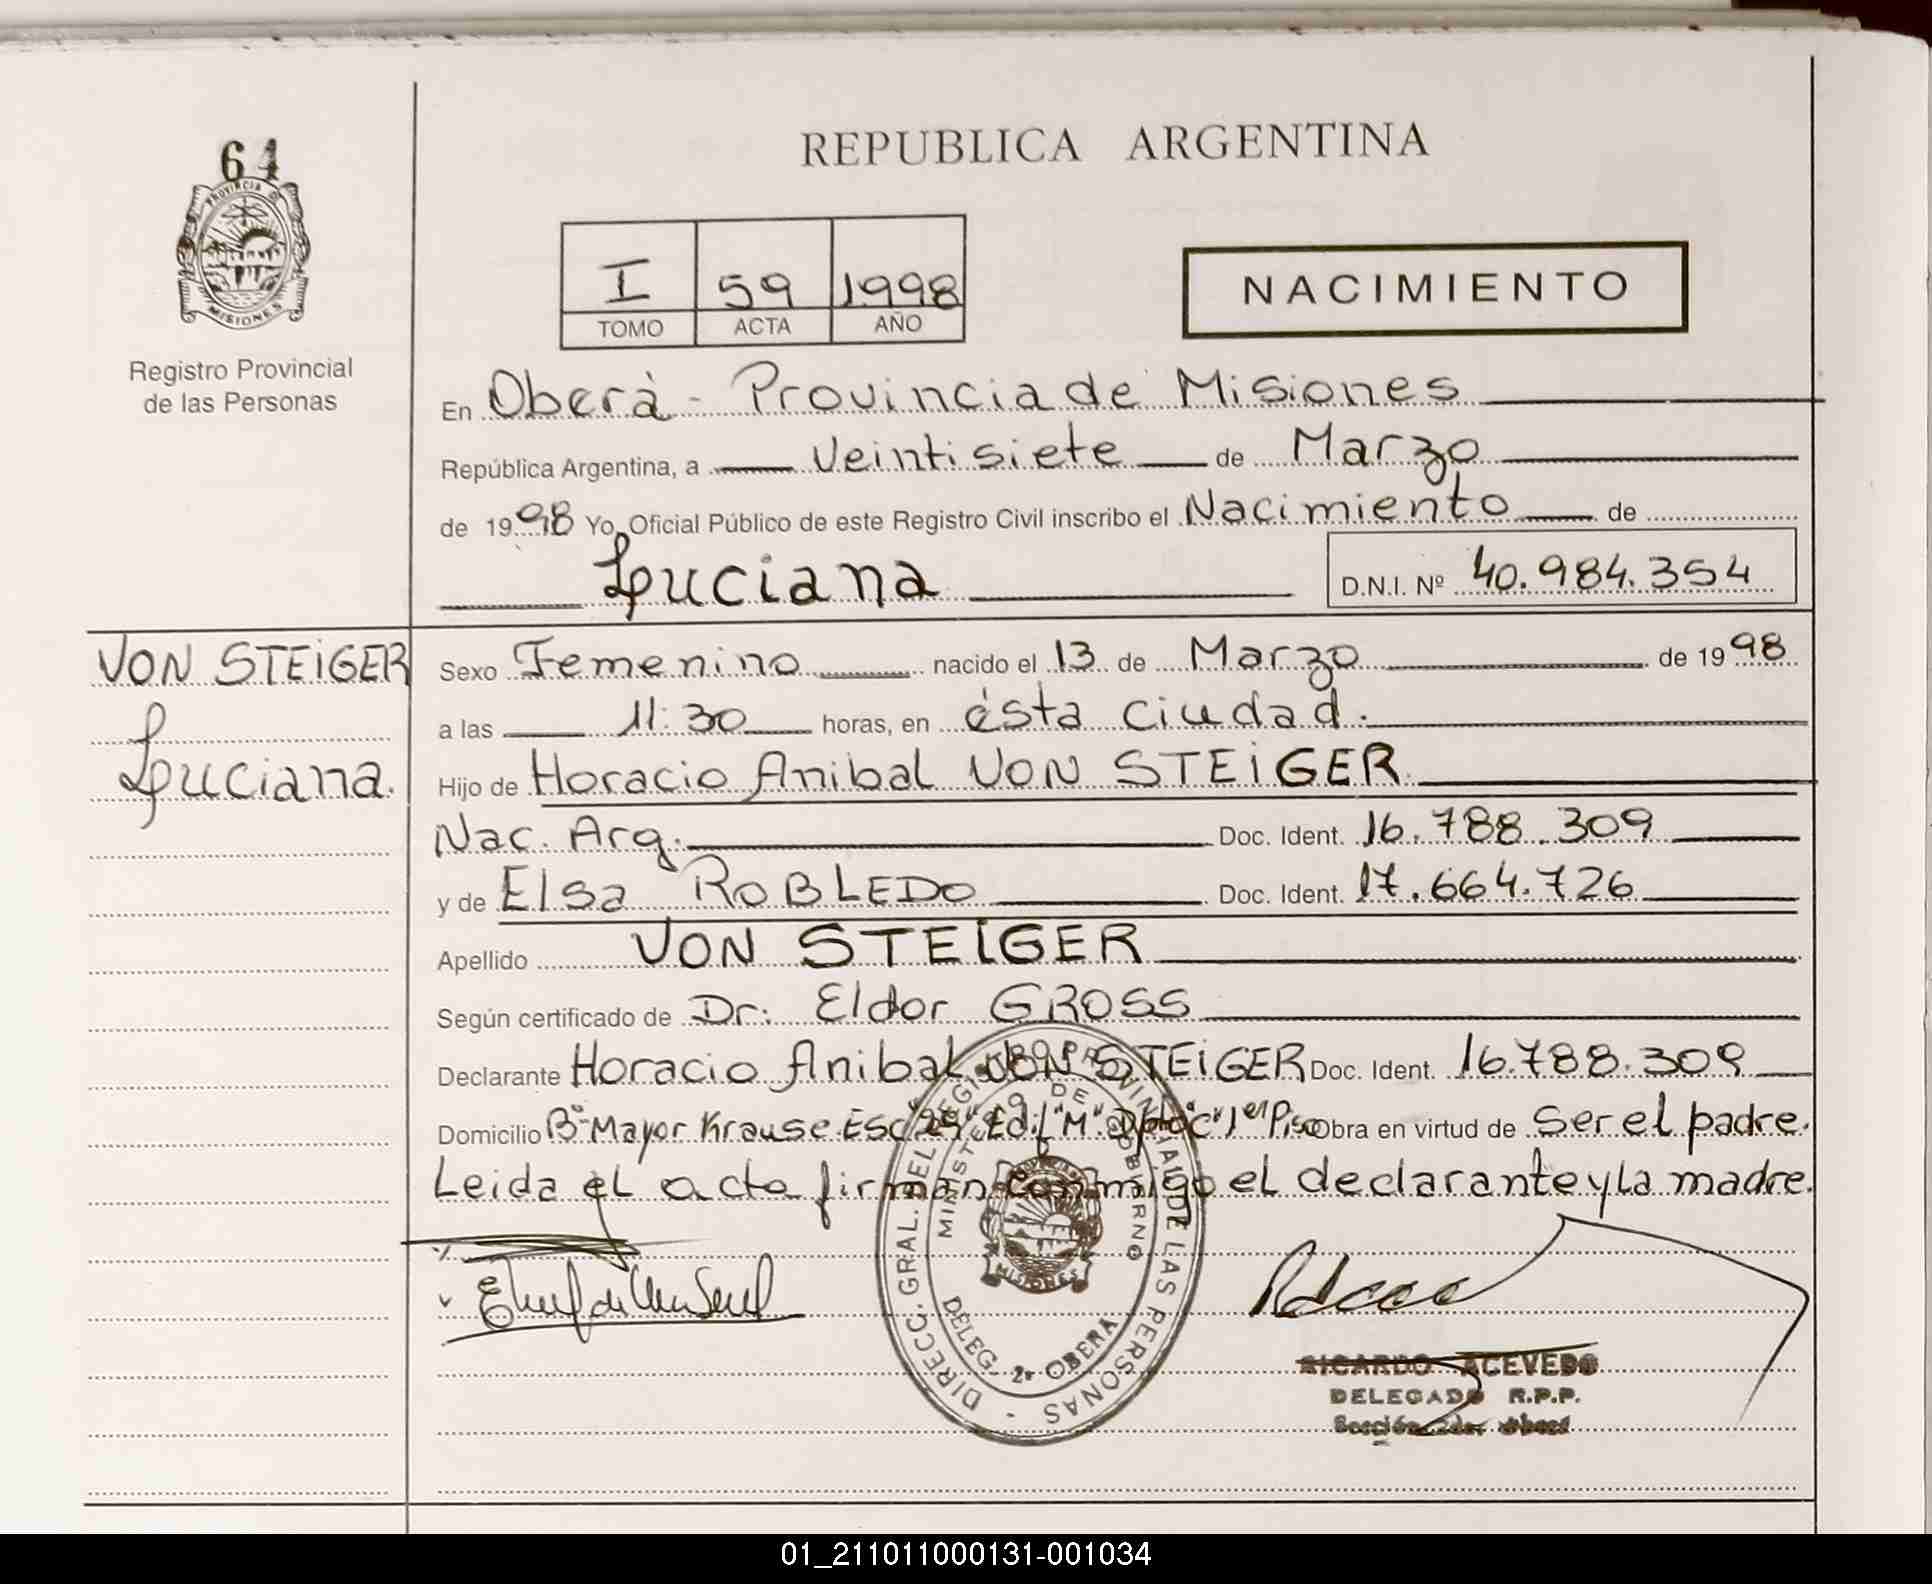 64
PROVINCIA DE
MISIONES
Registro Provincial
de las Personas
REPUBLICA ARGENTINA
I 59 1998
TOMO ACTA AÑO
NACIMIENTO
En Oberà - Provincia de Misiones
República Argentina, a Veintisiete de Marzo
de 1998 Yo, Oficial Público de este Registro Civil inscribo el Nacimiento de
Luciana
D.N.I. Nº 40.984.354
VON STEiGER
Luciana.
Sexo Femenino nacido el 13 de Marzo de 1998
a las 11:30 horas, en ésta ciudad.
Hijo de Horacio Anibal VON STEiGER
Nac. Arg. Doc. Ident. 16.788.309
y de Elsa ROBLEDO Doc. Ident. 17.664.726
Apellido VON STEiGER
Según certificado de Dr: Eldor GROSS
Declarante Horacio Anibal VON STEiGER Doc. Ident. 16.788.309
Domicilio Bº Mayor Krause Esc "25" Edif "M" Dpto "C" 1er Piso Obra en virtud de Ser el padre.
Leida el acta firman conmigo el declarante y la madre.
DIRECC. GRAL. DEL REGISTRO PROVINCIAL DE LAS PERSONAS -
MINISTERIO DE GOBIERNO
MISIONES
DELEG. 2ª OBERA
RICARDO ACEVEDO
DELEGADO R.P.P.
Sección 2da. Oberá
01_211011000131-001034